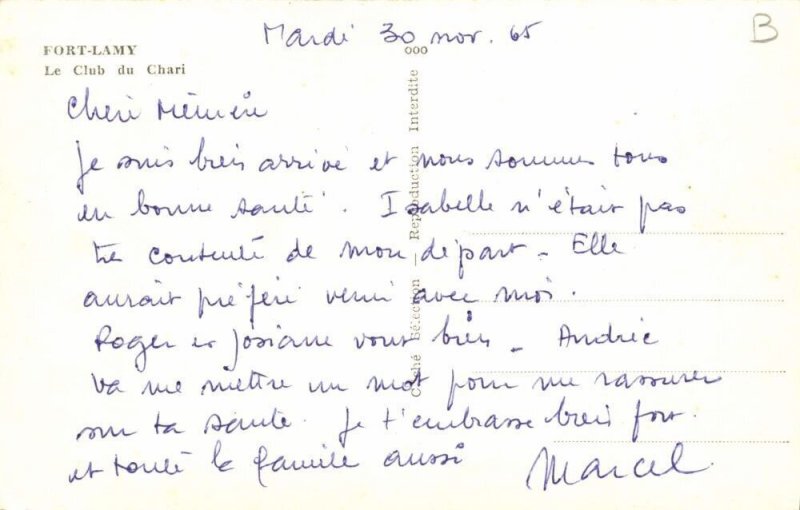 Mardi 30 nov. 65
B
FORT-LAMY
Le Club du Chari
Cliché Sélection — Reproduction Interdite
ooo
Chère Mémère
Je suis bien arrivé et nous sommes tous
en bonne santé. Isabelle n'était pas
très contente de mon départ - Elle
aurait préféré venir avec moi.
Roger et Josiane vont bien - Andrée
va me mettre un mot pour me rassurer
sur ta santé. Je t'embrasse bien fort.
et toute la famille aussi
Marcel